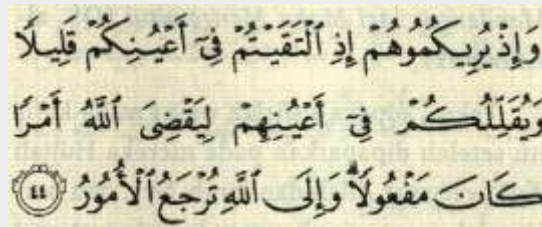 وَإِذْ يُرِيكُمُوهُمْ إِذِ ٱلْتَقَيْتُمْ فِىٓ أَعْيُنِكُمْ قَلِيلًا
وَيُقَلِّلُكُمْ فِىٓ أَعْيُنِهِمْ لِيَقْضِىَ ٱللَّهُ أَمْرًا
كَانَ مَفْعُولًا ۗ وَإِلَى ٱللَّهِ تُرْجَعُ ٱلْأُمُورُ ٤٤